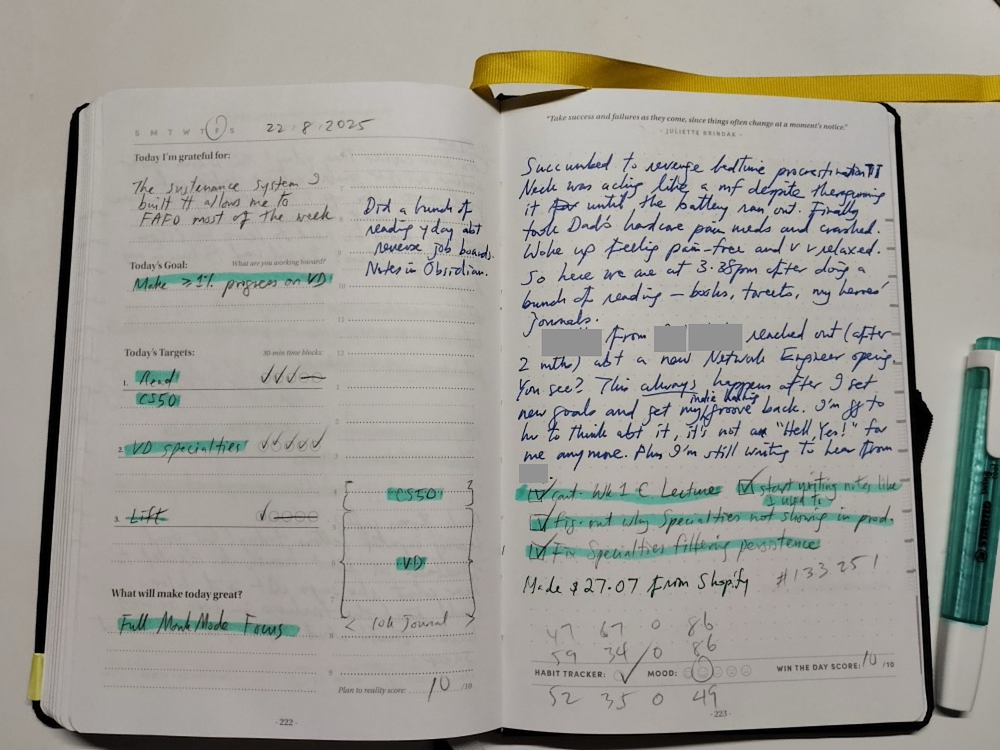 S M T W T F S 22.8.2025
Today I'm grateful for:
The sustenance system I
built tt allows me to
FAFO most of the week
Today's Goal: What are you working toward?
Make ≥1% progress on VD
Today's Targets: 30-min time blocks:
1. Read
CS50
2. VD specialties
3. Lift
What will make today great?
Full Monk Mode Focus
Did a bunch of
reading yday abt
reverse job boards.
Notes in Obsidian.
6
7
8
9
10
11
12
1
2
3
4 CS50
5
6 VD
7
8 < 10k Journal >
9
Plan to reality score: 10 /10
- 222 -
"Take success and failures as they come, since things often change at a moment's notice."
- JULIETTE BRINDAK -
Succumbed to revenge bedtime procrastination TT
Neck was acting like a mf despite theragunning
it until the battery ran out. Finally
took Dad's hardcore pain meds and crashed.
Woke up feeling pain-free and v v relaxed.
So here we are at 3.38pm after doing a
bunch of reading – books, tweets, my heroes'
journals.
from reached out (after
2 mths) abt a new Network Engineer opening.
You see? This always happens after I set
new goals and get my indie hacking groove back. I'm
to think abt it, it's not a "Hell, Yes!" for
me anymore. Plus I'm still waiting to hear from
☑ cont. Wk 1 C Lecture ☑ start writing notes like
I used to
☑ Fig. out why Specialties not showing in prod.
☑ Fix Specialties filtering persistence
Made $27.07 from Shopify #133.251
47 67 0 86
59 34 0 86
HABIT TRACKER: MOOD: WIN THE DAY SCORE: 10 /10
52 35 0 49
- 223 -
STABILO